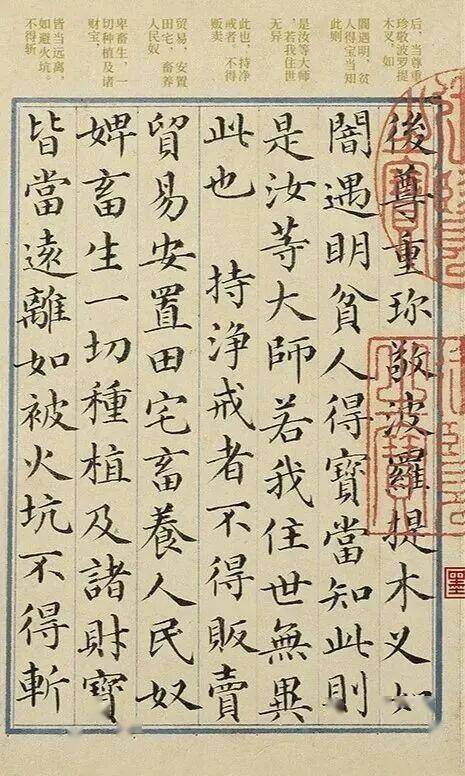 后，当尊重
珍敬波罗提
木叉，如
闇遇明，贫
人得宝当知
此则
是汝等大师
，若我住世
无异
此也，持净
戒者。不得
贩卖
贸易，安置
田宅，畜养
人民奴
卑畜生，一
切种植及诸
财宝，
皆当远离，
如避火坑。
不得斩
後尊重珎敬波羅提木叉如
闇遇明貧人得寶當知此則
是汝等大師若我住世無異
此也 持浄戒者不得販賣
貿易安置田宅畜養人民奴
婢畜生一切種植及諸財寶
皆當遠離如被火坑不得斬
墨